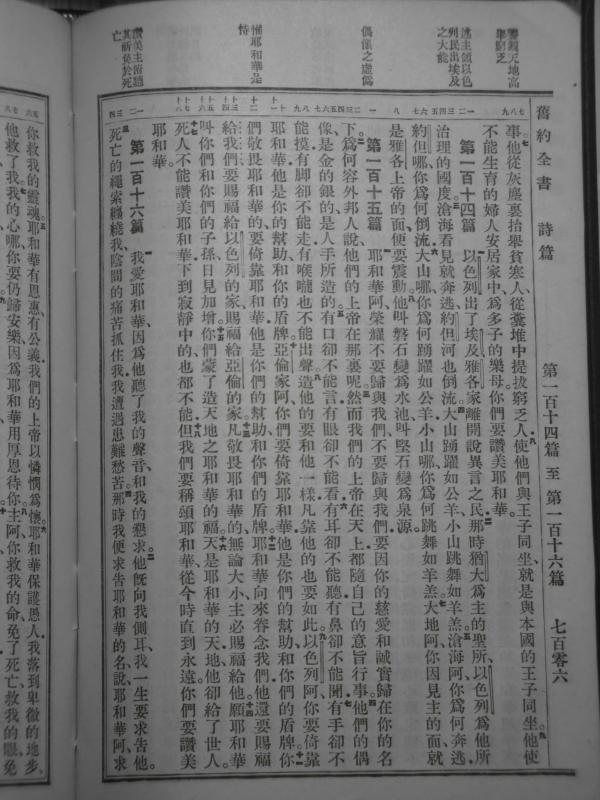 舊約全書 詩篇 第一百十四篇 至 第一百十六篇 七百零六
述主領以色
列民出埃及
之大能
偶像之虛偽
惟耶和華是
恃
事他從灰塵裏抬舉貧寒人、從糞堆中提拔窮乏人使他們與王子同坐、就是與本國的王子同坐他使
不能生育的婦人安居家中爲多子的樂母你們要讚美耶和華。
第一百十四篇 以色列出了埃及雅各家離開說異言之民那時猶大爲主的聖所以色列爲他所
治理的國度滄海看見就奔逃約但河也倒流大山踴躍如公羊小山跳舞如羊羔滄海阿你爲何奔逃
約但哪你爲何倒流大山哪你爲何踴躍如公羊小山哪你爲何跳舞如羊羔大地阿你因見主的面就
是雅各上帝的面便要震動他叫磐石變爲水池叫堅石變爲泉源。
第一百十五篇 耶和華阿榮耀不要歸與我們不要歸與我們要因你的慈愛和誠實歸在你的名
下爲何容外邦人說他們的上帝在那裏呢然而我們的上帝在天上都隨自己的意旨行事他們的偶
像是金的銀的是人手所造的有口卻不能言有眼卻不能看有耳卻不能聽有鼻卻不能聞有手卻不
能摸有脚卻不能走有喉嚨也不能出聲造他的要和他一樣凡靠他的也要如此以色列阿你要倚靠
耶和華他是你的幫助和你的盾牌亞倫家阿你們要倚靠耶和華他是你們的幫助和你們的盾牌你
們敬畏耶和華的要倚靠耶和華他是你們的幫助和你們的盾牌耶和華向來眷念我們他還要賜福
給我們要賜福給以色列的家賜福給亞倫的家凡敬畏耶和華的無論大小主必賜福給他願耶和華
叫你們和你們的子孫日見加增你們蒙了造天地之耶和華的福天是耶和華的天地他卻給了世人
死人不能讚美耶和華下到寂靜中的也都不能但我們要稱頌耶和華從今時直到永遠你們要讚美
耶和華。
第一百十六篇 我愛耶和華因爲他聽了我的聲音和我的懇求他旣向我側耳、我一生要求告他
死亡的繩索纏繞我陰間的痛苦抓住我我遭遇患難愁苦那時我便求告耶和華的名說耶和華阿求
你救我的靈魂耶和華有恩惠有公義我們的上帝以憐憫爲懷耶和華保護愚人我落到卑微的地步
他救了我我的心哪你要仍歸安樂因爲耶和華用厚恩待你主阿你救我的命免了死亡救我的眼免